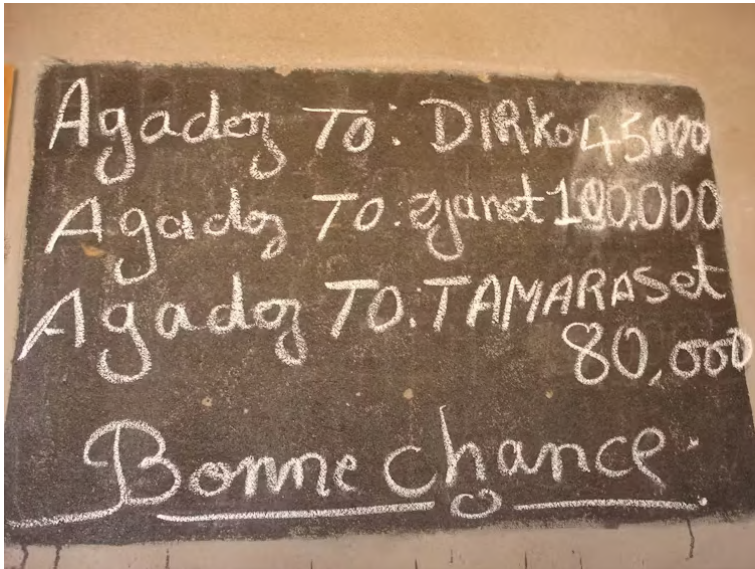 Agadez To: DIRKo 45000
Agadez To: zjanet 100.000
Agadez TO: TAMARASet
80,000
Bonne chance